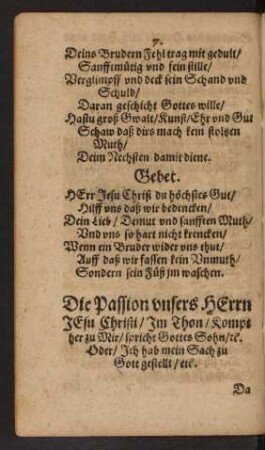 7.
Deins Brudern Fehl trag mit gedult/
Sanfftmütig vnd fein stille/
Verglimpff vnd deck sein Schand vnd
Schuld/
Daran geschicht Gottes wille/
Hastu groß Gwalt/Kunst/Ehr vnd Gut
Schaw daß dirs mach kein stoltzen
Muth/
Deim Nechsten damit diene.
Gebet.
HErr Jesu Christ du höchstes Gut/
Hilff vns daß wir bedencken/
Dein Lieb/ Demut vnd sanfften Muth/
Vnd vns so hart nicht krencken/
Wenn ein Bruder wider vns thut/
Auff daß wir fassen kein Vnmuth/
Sondern sein Füß jm waschen.
Die Passion vnsers HErrn
JEsu Christi/ Im Thon/ Kompt
her zu Mir/ spricht Gottes Sohn/ꝛc.
Oder/ Ich hab mein Sach zu
Gott gestellt/ etc.
Da